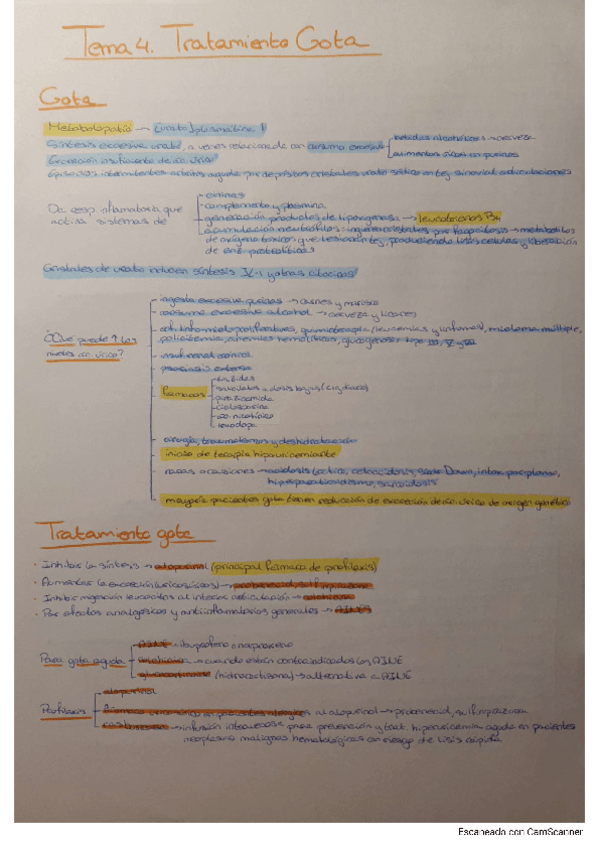 Tema 4. Tratamiento Gota
Gota
Metabolopatía → [urato] plasmática ↑
Síntesis excesiva urato, a veces relacionada con consumo excesivo
bebidas alcohólicas → cerveza
alimentos ricos en purinas
Excreción insuficiente de ác. úrico
Episodios intermitentes artritis aguda por depósitos cristales urato sódico en tej. sinovial articulaciones
Da resp. inflamatoria que activa sistemas de
cininas
complemento y plasmina
generación productos de lipoxigenasa → leucotrienos B4
acumulación neutrófilos: ingieren cristales por fagocitosis → metabolitos
de oxígeno tóxicos que lesionan tej, produciendo lisis células y liberación
de enz. proteolíticas
Cristales de urato inducen síntesis IL-1 y otras citocinas
¿Qué puede ↑ los niveles ác. úrico?
ingesta excesiva purinas → carnes y marisco
consumo excesivo alcohol → cerveza y licores
enf. linfomieloproliferativas, quimioterapia (leucemias y linfomas), mieloma múltiple,
policitemia, anemias hemolíticas, glucogenosis tipo III, V y VII
insuf. renal crónica
psoriasis extensa
fármacos
tiazidas
salicilatos a dosis bajas (<2g diarios)
pirazinamida
ciclosporina
ác. nicotínico
levodopa
cirugía, traumatismos y deshidratación
inicio de terapia hipouricemiante
raras ocasiones → acidosis láctica, cetoacidosis, síndr. Down, intox. por plomo,
hiperparatiroidismo, sarcoidosis
mayoría pacientes gota tienen reducción de excreción de ác. úrico de origen genético
Tratamiento gota
· Inhibir la síntesis → alopurinol (principal fármaco de profilaxis)
· Aumentar la excreción (uricosúricos) → probenecid, sulfinpirazona
· Inhibir migración leucocitos al interior articulación → colchicina
· Por efectos analgésicos y antiinflamatorios generales → AINES
Para gota aguda
AINE → ibuprofeno o naproxeno
colchicina → cuando están contraindicados los AINE
glucocorticoide (hidrocortisona) → alternativa a AINE
Profilaxis
alopurinol
Fármaco uricosúrico en pacientes alérgicos al alopurinol → probenecid, sulfinpirazona
rasburicasa → infusión intravenosa para prevención y trat. hiperuricemia aguda en pacientes
neoplasias malignas hematológicas con riesgo de lisis rápida
Escaneado con CamScanner